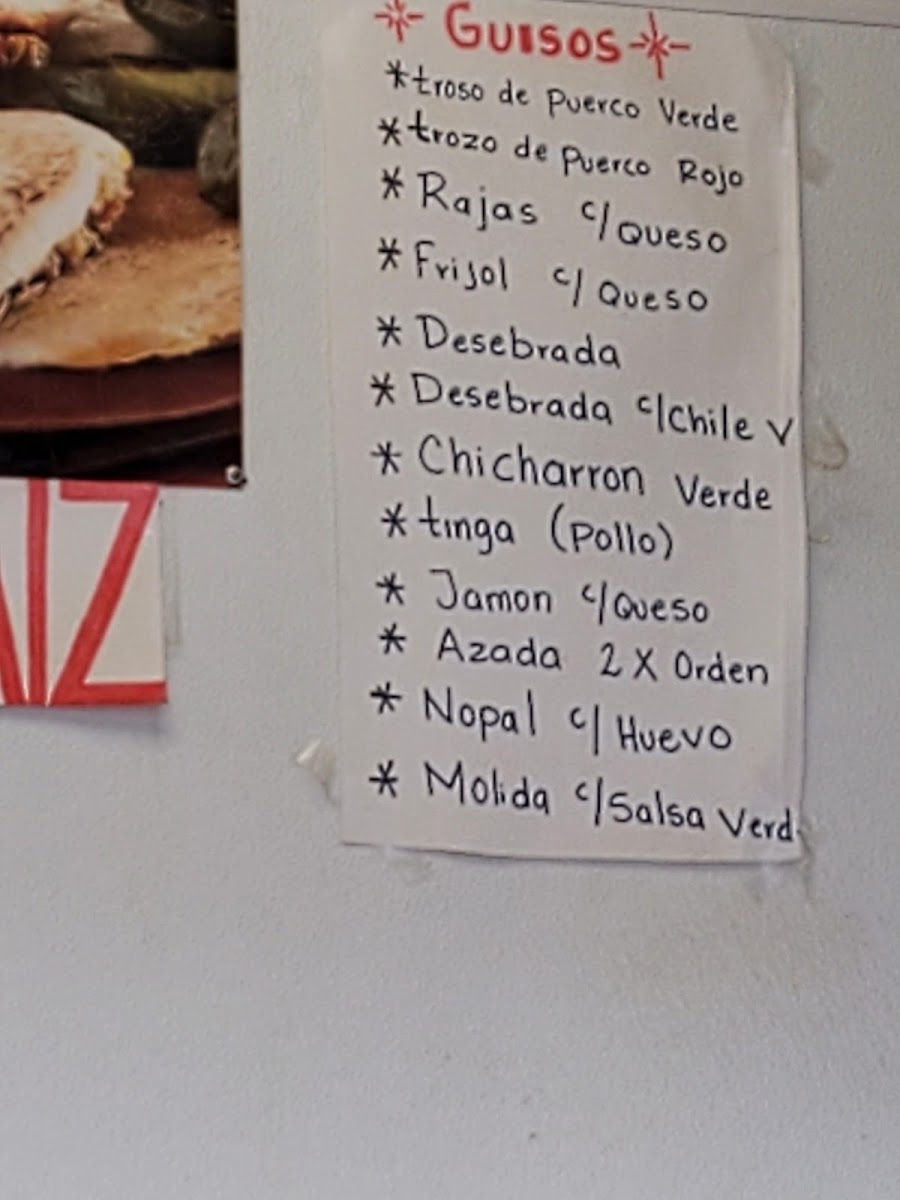 * Guisos *
* troso de Puerco Verde
* trozo de Puerco Rojo
* Rajas c/Queso
* Frijol c/ Queso
* Desebrada
* Desebrada c/Chile V
* Chicharron Verde
* tinga (Pollo)
* Jamon c/Queso
* Azada 2 X Orden
* Nopal c/ Huevo
* Molida c/Salsa Verd
IZ